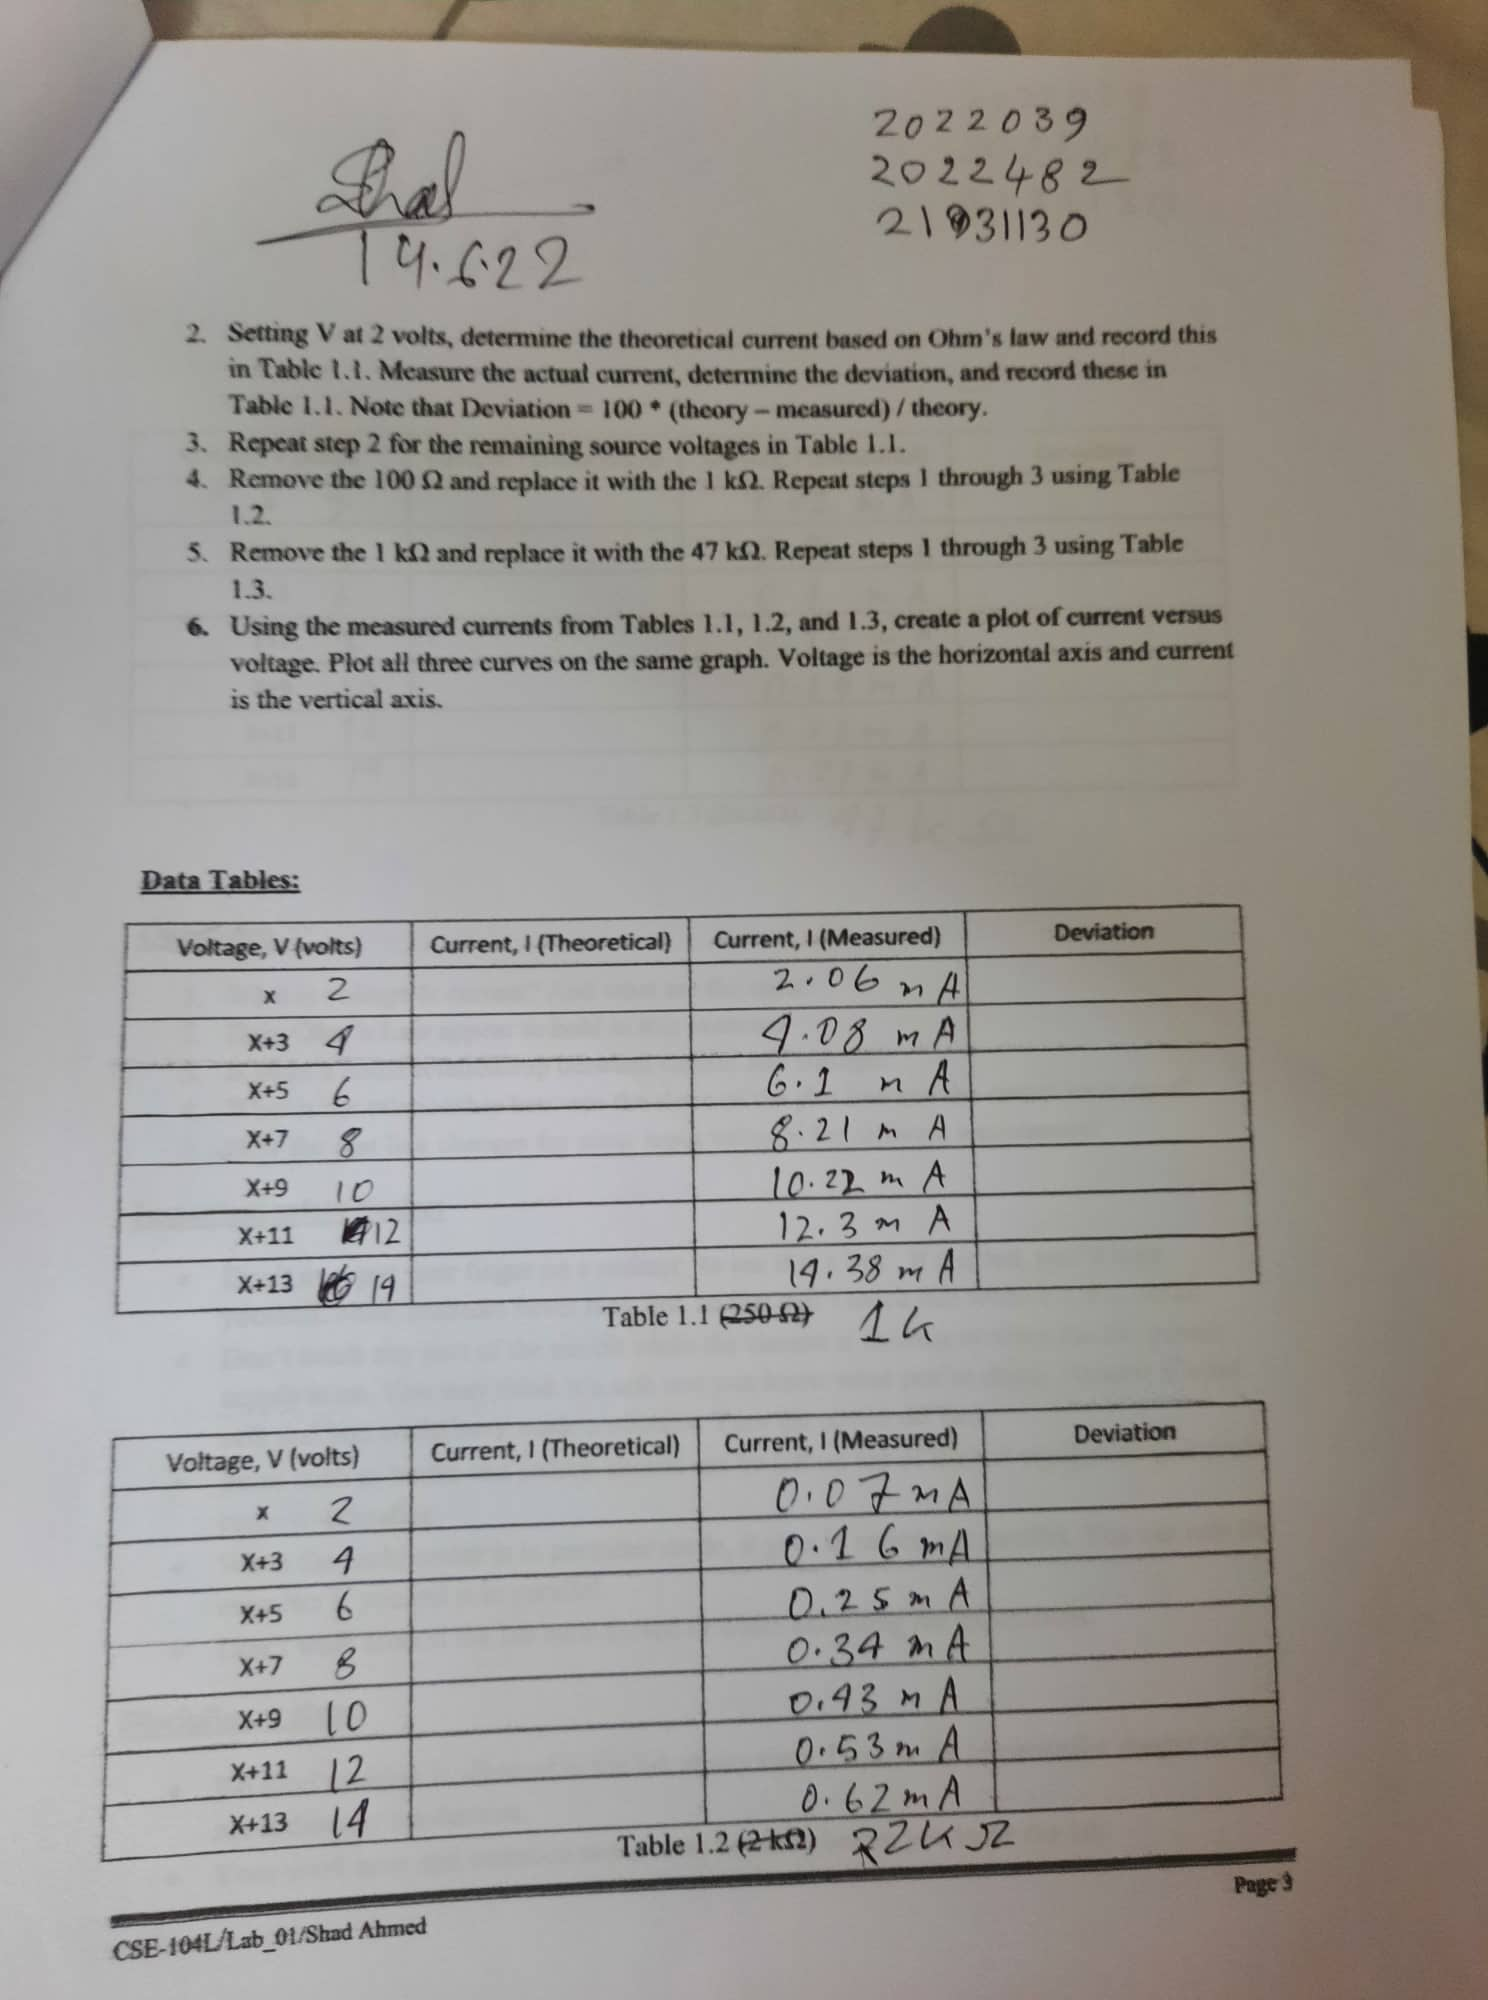 Shad
14.6.22
2022039
2022482
21931130
2. Setting V at 2 volts, determine the theoretical current based on Ohm's law and record this
in Table 1.1. Measure the actual current, determine the deviation, and record these in
Table 1.1. Note that Deviation = 100 * (theory – measured) / theory.
3. Repeat step 2 for the remaining source voltages in Table 1.1.
4. Remove the 100 Ω and replace it with the 1 kΩ. Repeat steps 1 through 3 using Table
1.2.
5. Remove the 1 kΩ and replace it with the 47 kΩ. Repeat steps 1 through 3 using Table
1.3.
6. Using the measured currents from Tables 1.1, 1.2, and 1.3, create a plot of current versus
voltage. Plot all three curves on the same graph. Voltage is the horizontal axis and current
is the vertical axis.
Data Tables:
Voltage, V (volts) Current, I (Theoretical) Current, I (Measured) Deviation
x 2 2.06 mA
X+3 4 4.08 mA
X+5 6 6.1 mA
X+7 8 8.21 mA
X+9 10 10.22 mA
X+11 12 12.3 mA
X+13 14 14.38 mA
Table 1.1 (250 Ω) 1k
Voltage, V (volts) Current, I (Theoretical) Current, I (Measured) Deviation
x 2 0.07 mA
X+3 4 0.16 mA
X+5 6 0.25 mA
X+7 8 0.34 mA
X+9 10 0.43 mA
X+11 12 0.53 mA
X+13 14 0.62 mA
Table 1.2 (2 kΩ) 22kΩ
Page 3
CSE-104L/Lab_01/Shad Ahmed